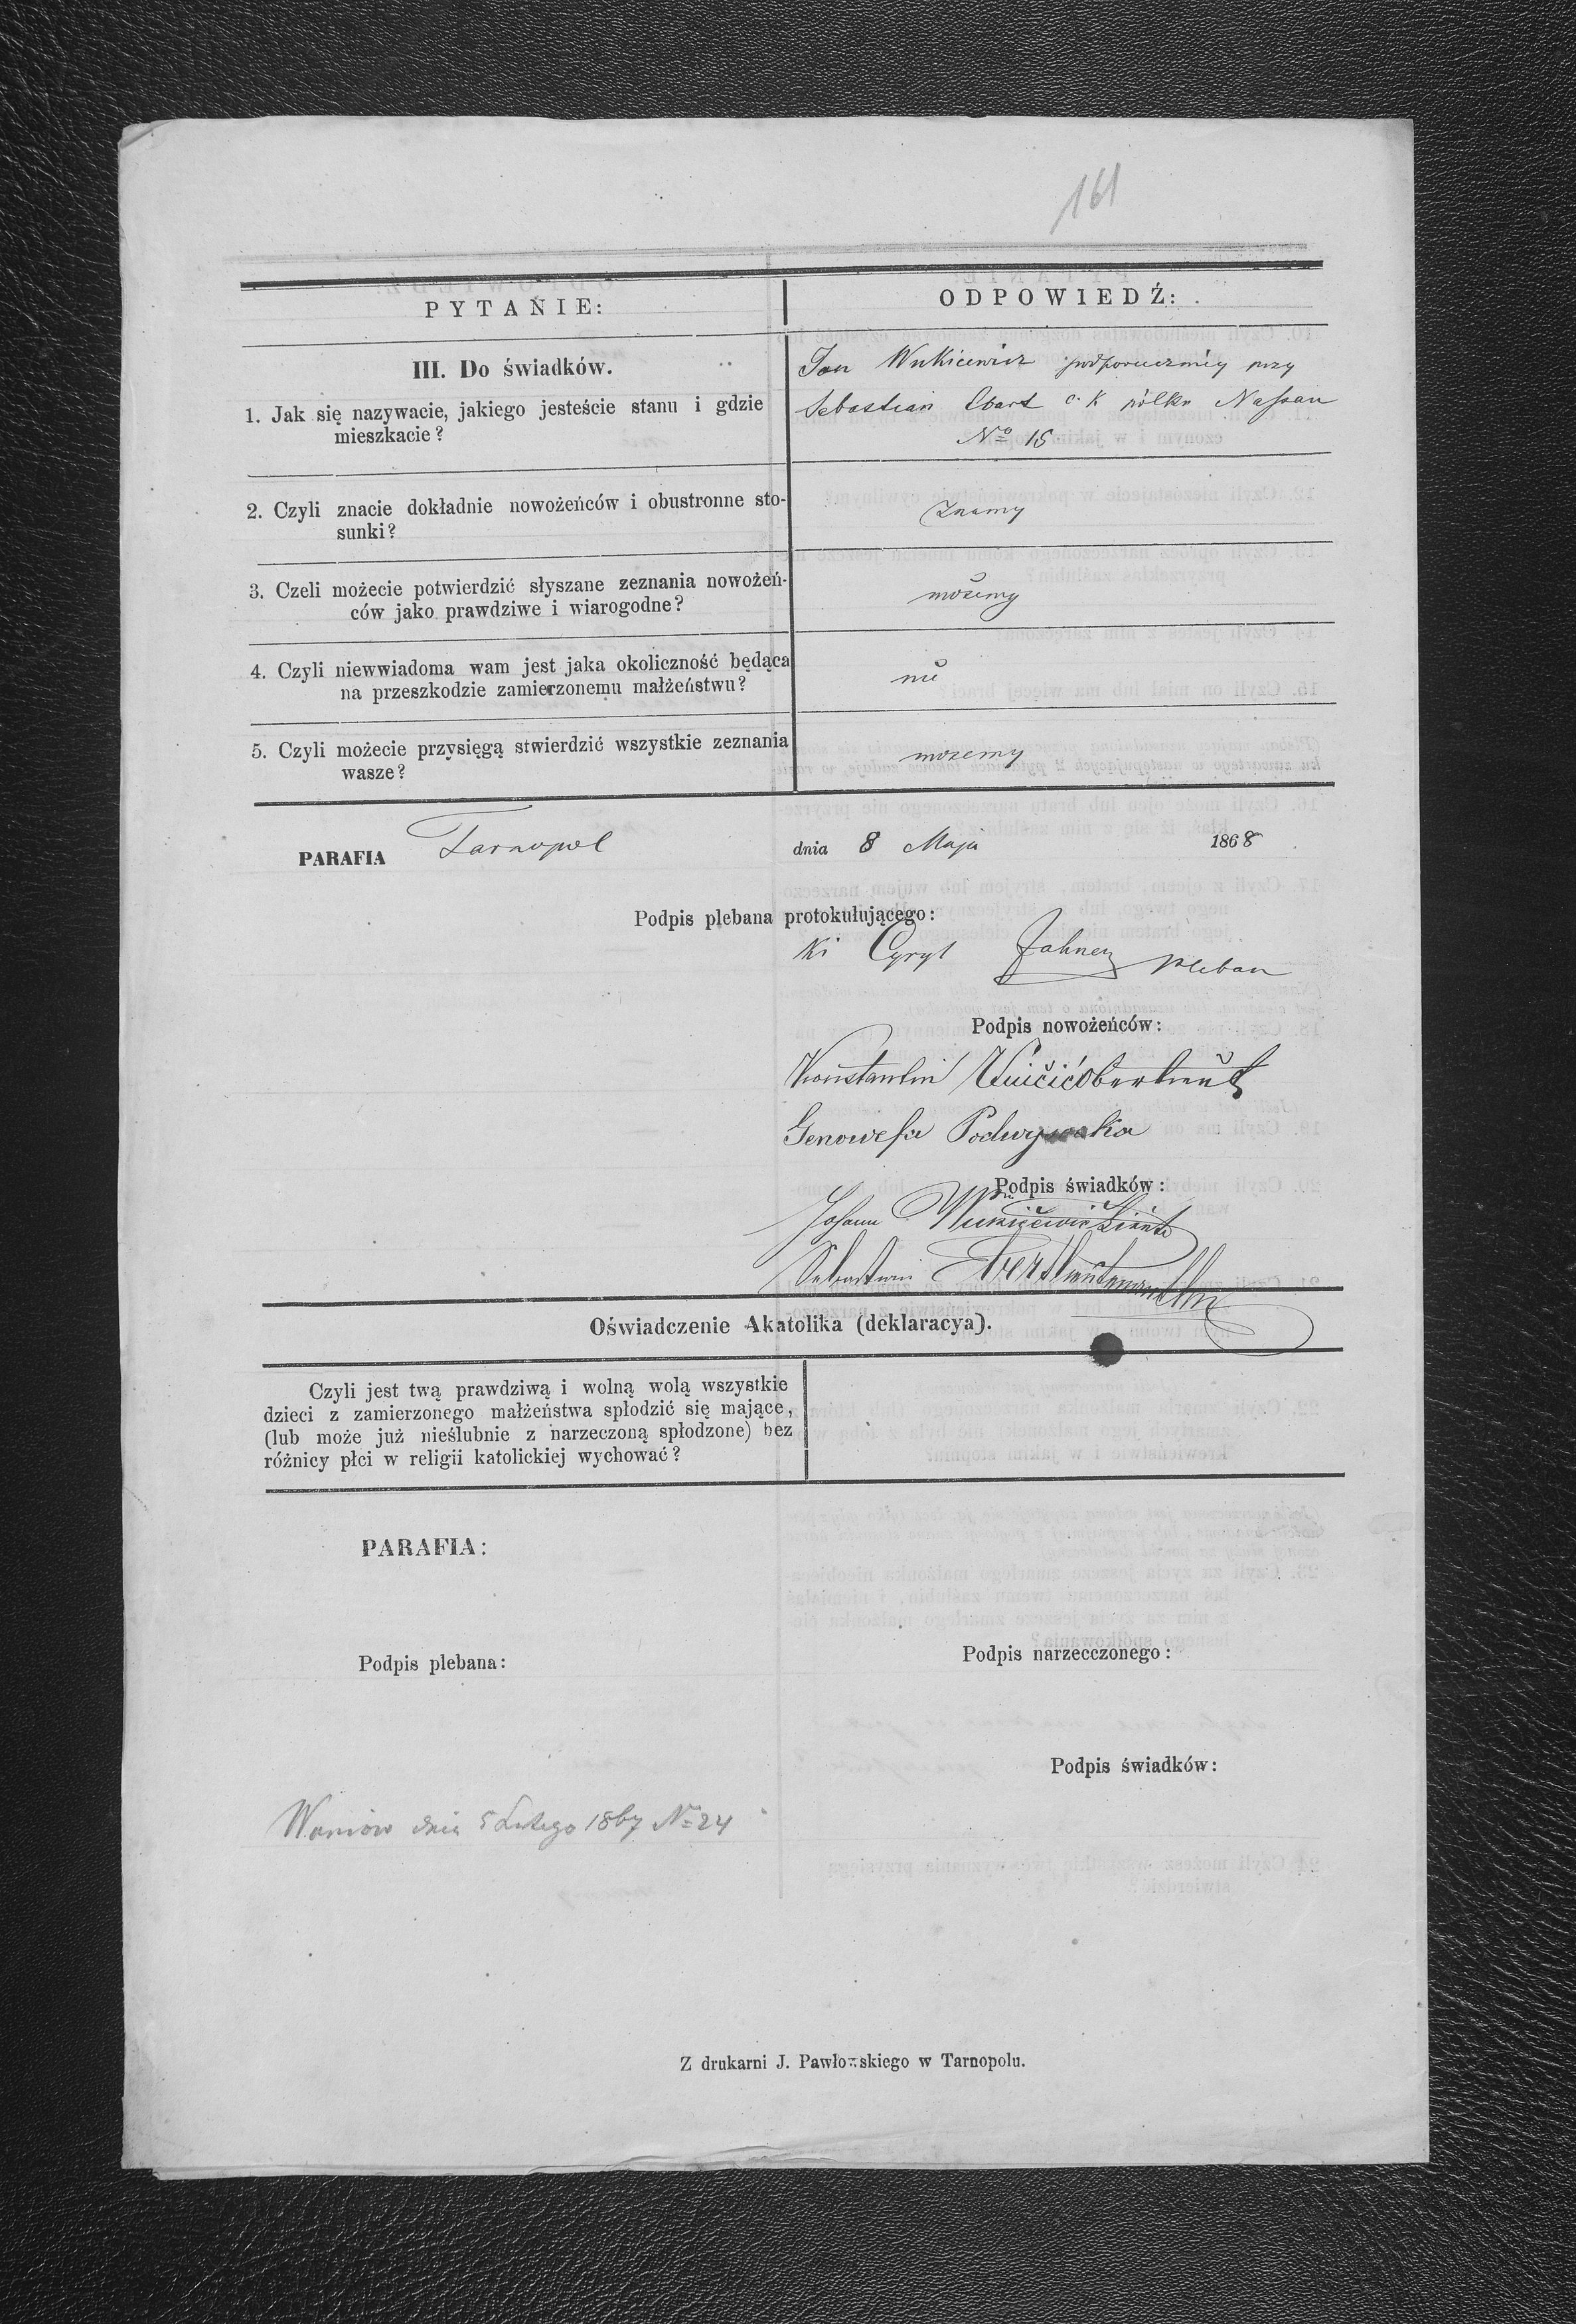 161
PYTANIE:
ODPOWIEDŹ:
III. Do świadków.
1. Jak się nazywacie, jakiego jesteście stanu i gdzie
mieszkacie?
Jan Wukicewicz podporucznicy przy
Sebastian Ebart c. k pólku Nassau
No 15
2. Czyli znacie dokładnie nowożeńców i obustronne sto-
sunki?
znamy
3. Czeli możecie potwierdzić słyszane zeznania nowożeń-
ców jako prawdziwe i wiarogodne?
możemy
4. Czyli niewwiadoma wam jest jaka okoliczność będąca
na przeszkodzie zamierzonemu małżeństwu?
nie
5. Czyli możecie przysięgą stwierdzić wszystkie zeznania
wasze?
mozemy
PARAFIA Tarnopol dnia 8 Maja 1868
Podpis plebana protokułującego:
Cyryl pleban
Podpis nowożeńców:
Konstantin
Genowefa
Podpis świadków:
Johann
Sebastian
Oświadczenie Akatolika (deklaracya).
Czyli jest twą prawdziwą i wolną wolą wszystkie
dzieci z zamierzonego małżeństwa spłodzić się mające,
(lub może już nieślubnie z narzeczoną spłodzone) bez
różnicy płci w religii katolickiej wychować?
PARAFIA:
Podpis plebana:
Podpis narzecczonego:
Podpis świadków:
dnia 5 Lutego 1867 No 24
Z drukarni J. Pawłowskiego w Tarnopolu.